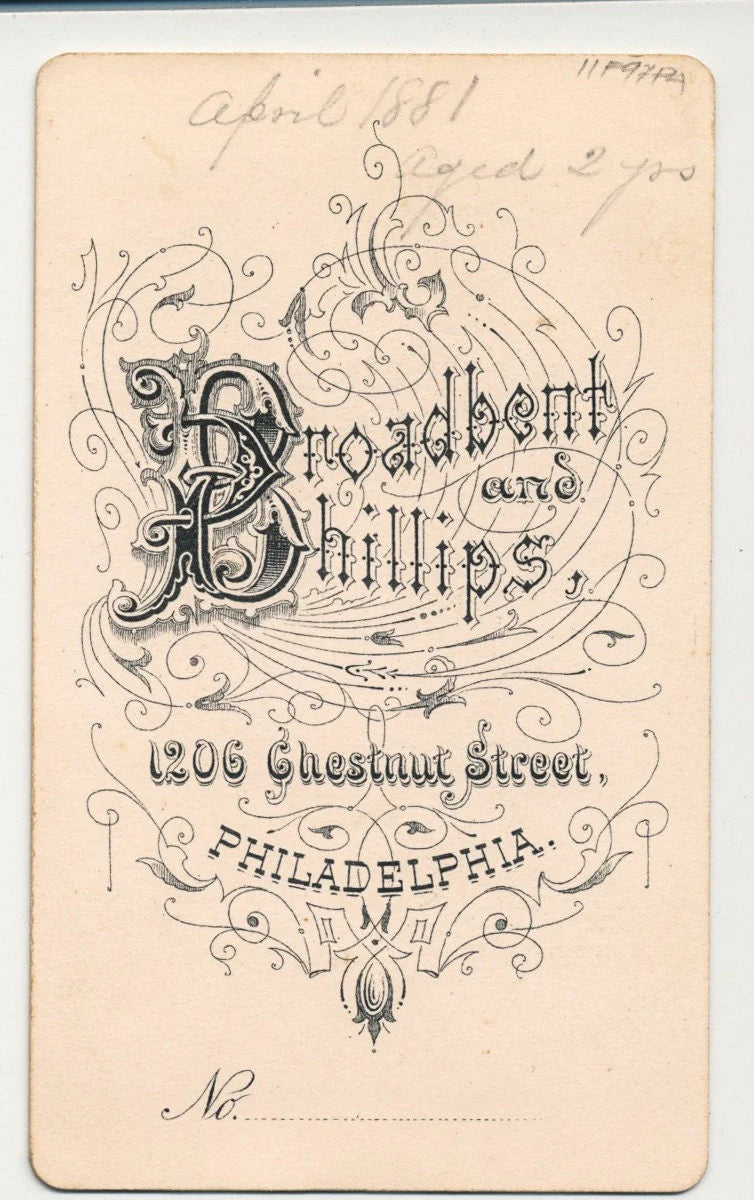 April 1881
aged 2 yrs
Broadbent
and
Phillips,
1206 Chestnut Street,
PHILADELPHIA.
No.